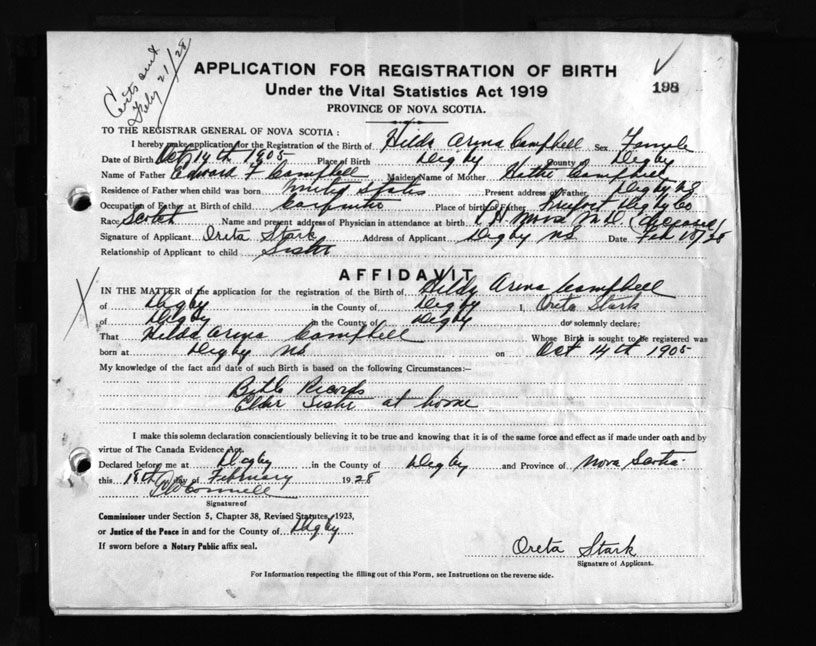 Certs sent
Feby 21/28
APPLICATION FOR REGISTRATION OF BIRTH
Under the Vital Statistics Act 1919
198
PROVINCE OF NOVA SCOTIA.
TO THE REGISTRAR GENERAL OF NOVA SCOTIA :
I hereby make application for the Registration of the Birth of Hilda Arma Campbell Sex Female
Date of Birth Oct 14th 1905 Place of Birth Digby County of Digby
Name of Father Edward F Campbell Maiden Name of Mother Campbell
Residence of Father when child was born United States Present address of Father Digby NS
Occupation of Father at Birth of child Carpenter Place of birth of Father Freeport Digby Co
Race Scotch Name and present address of Physician in attendance at birth M.D.
Signature of Applicant Oreta Stark Address of Applicant Digby NS Date Feb 18/28
Relationship of Applicant to child Sister
AFFIDAVIT
IN THE MATTER of the application for the registration of the Birth of Hilda Arma Campbell
of Digby in the County of Digby I, Oreta Stark
of Digby in the County of Digby do solemnly declare:
That Hilda Arma Campbell Whose Birth is sought to be registered was
born at Digby NS on Oct 14th 1905
My knowledge of the fact and date of such Birth is based on the following Circumstances:—
Bible Records
Elder Sister at home
I make this solemn declaration conscientiously believing it to be true and knowing that it is of the same force and effect as if made under oath and by
virtue of The Canada Evidence Act.
Declared before me at Digby in the County of Digby and Province of Nova Scotia
this 18th day of February 1928
Signature of
Commissioner under Section 5, Chapter 38, Revised Statutes, 1923,
or Justice of the Peace in and for the County of Digby
If sworn before a Notary Public affix seal.
Oreta Stark
Signature of Applicant.
For Information respecting the filling out of this Form, see Instructions on the reverse side.